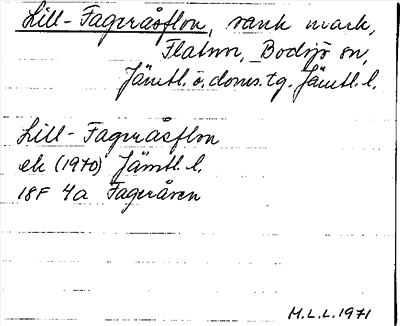 Lill-Fageråsflon, sank mark,
Flatnor, Bodsjö sn,
Jämtl. ö. doms. tg. Jämtl. l.
Lill-Fageråsflon
ek (1970) Jämtl. l.
18F 4a Fageråsen
M.L.L. 1971